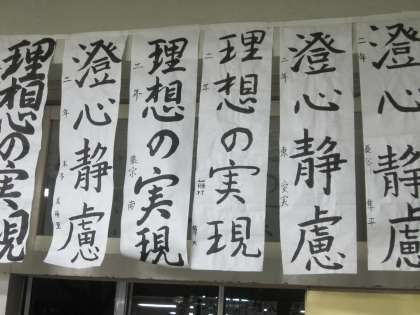 澄心静慮
二年
長谷
澄心静慮
二年
東
理想の実現
二年
理想の実現
二年
澄心静慮
二年
理想の実現